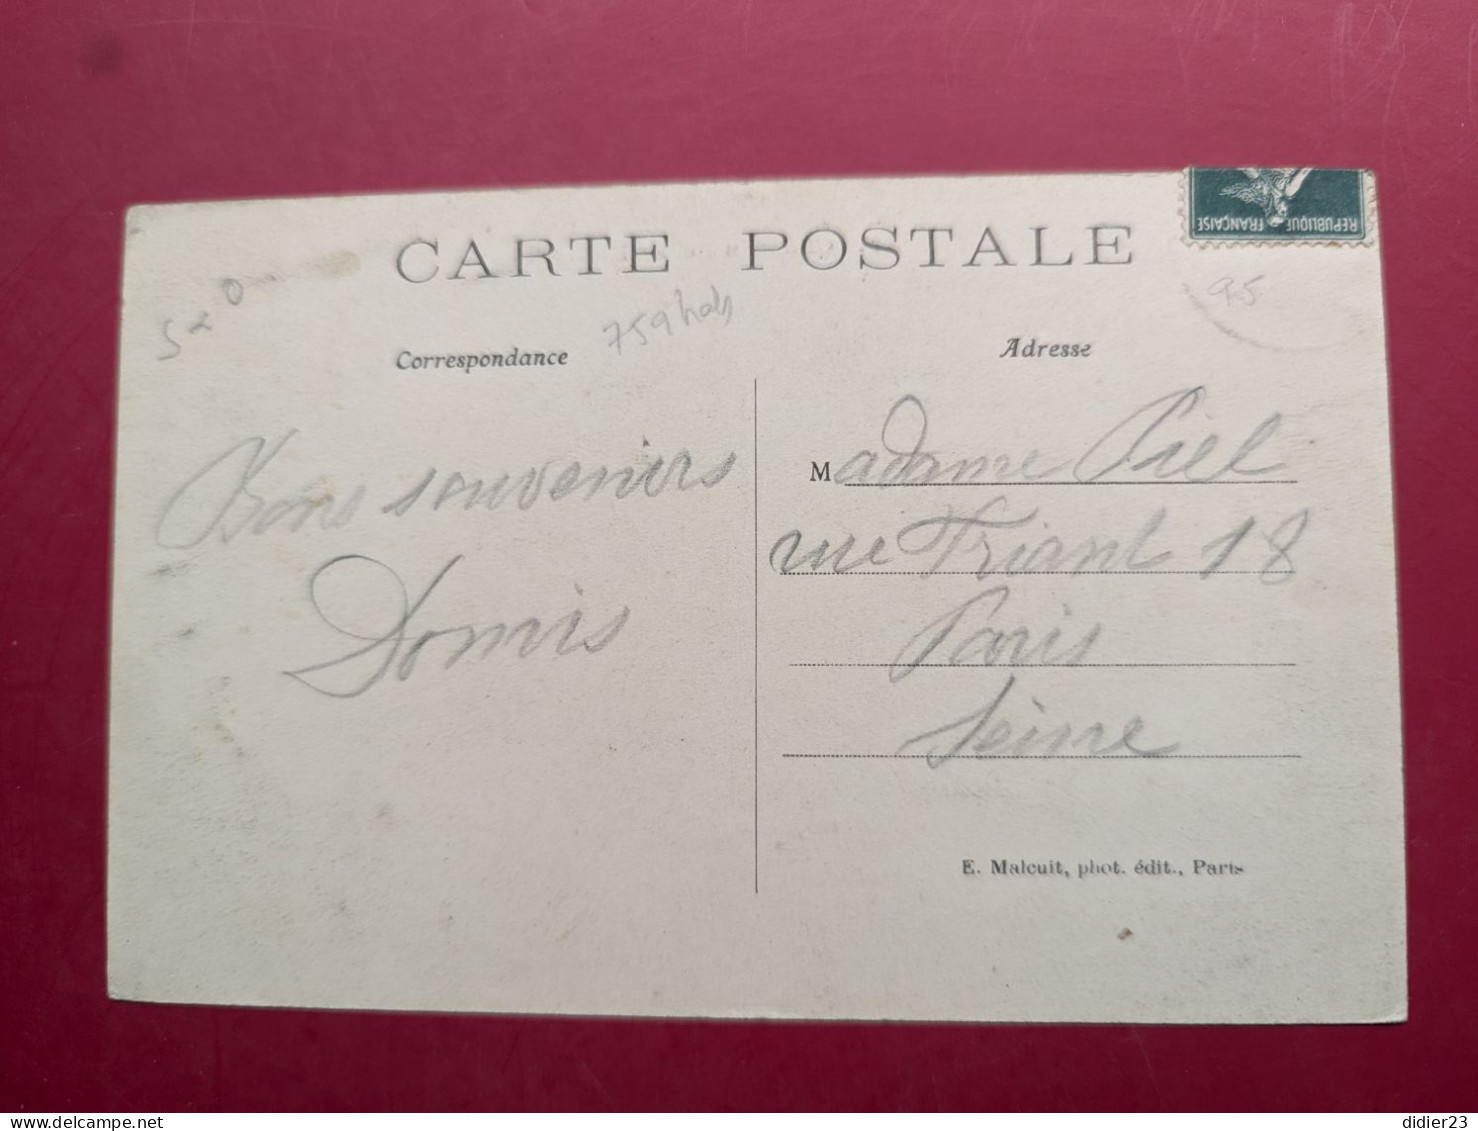 CARTE POSTALE
REPUBLIQUE FRANÇAISE
95
5 x 0
759 hab
Correspondance
Adresse
Bons souvenirs
Madame Piel
rue Friant 18
Paris
Seine
E. Malcuit, phot. édit., Paris
delcampe.net
didier23